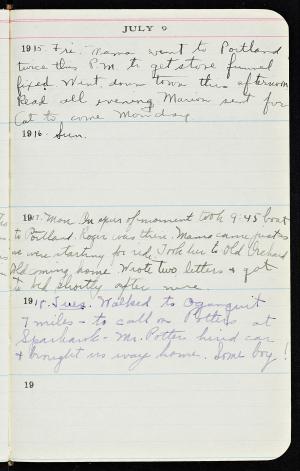 JULY 9
1915. Fri. Mama went to Portland
twice this P.M. to get stove funnel
fixed. Went down town this afternoon
Read all evening Marion sent for
Cat to come Monday
1916. Sun.
1917. Mon. In spur of moment took 9:45 boat
to Portland. Roger was there. Mama came just as
we were starting for ride. Took her to Old Orchard
Old coming home. Wrote two letters & got
to bed shortly after nine.
1918. Tues. Walked to Ogunquit
7 miles - to call on Potters at
Sparhawk - Mr. Potter hired car
& brought us way home. Some boy!
19